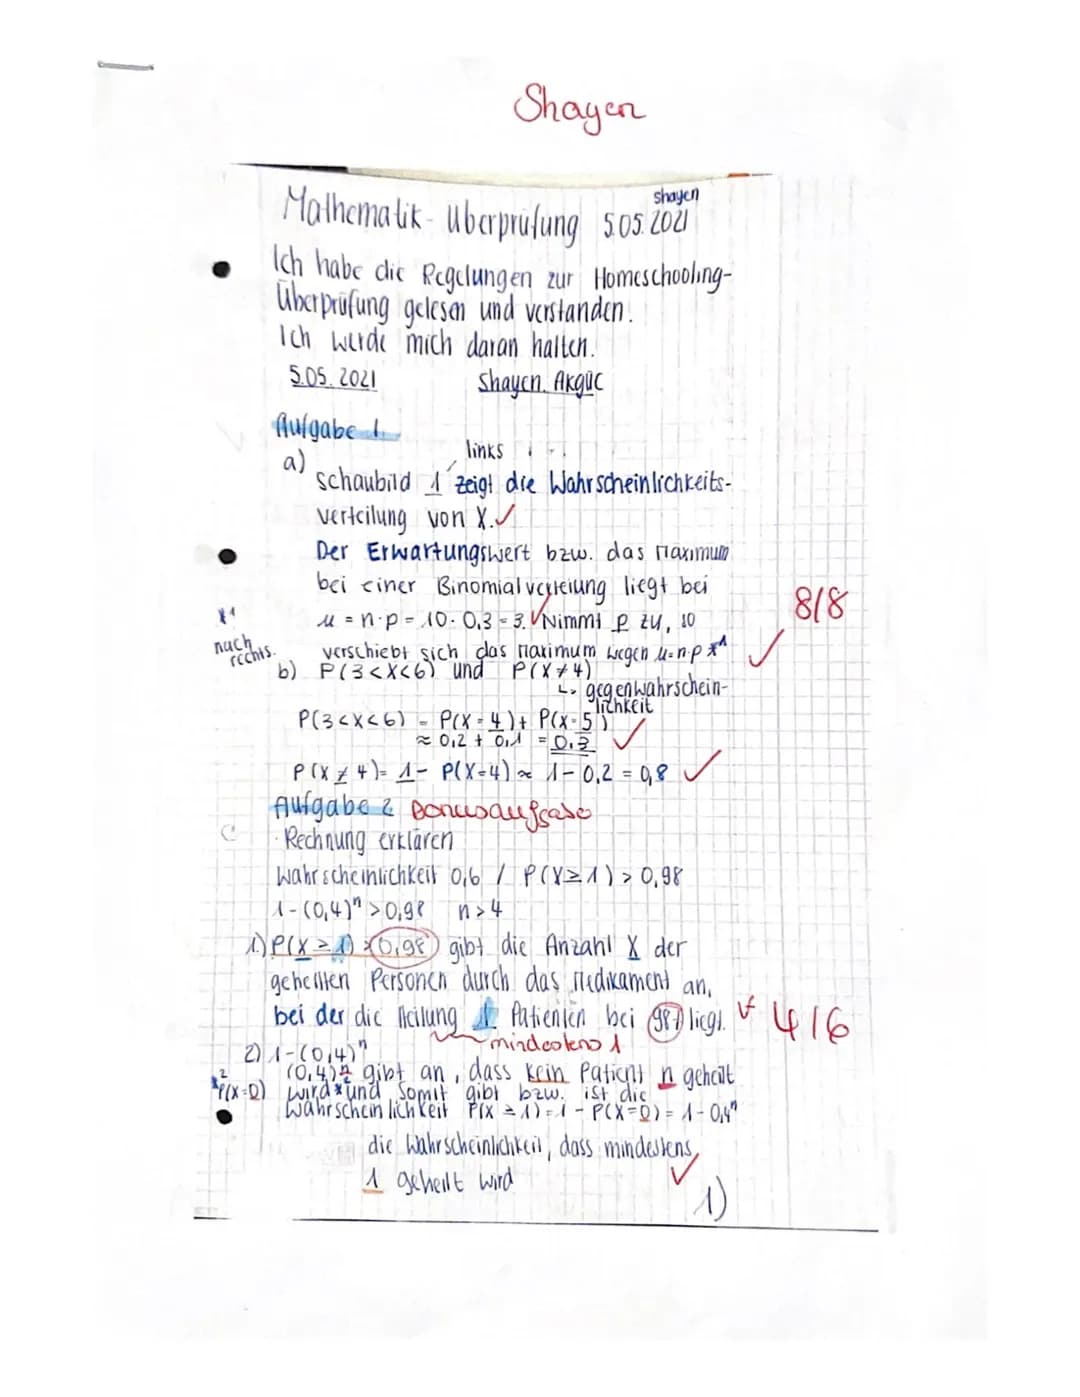 Shayen
Shayen
Mathematik-Überprüfung 5.05.2021
Ich habe die Regelungen zur Homeschooling-
Überprüfung gelesen und verstanden.
Ich werde mich daran halten.
5.05.2021 Shayen Akgüc
Aufgabe 1
links
a) schaubild 1 zeigt die Wahrscheinlichkeits-
verteilung von X. ✓
Der Erwartungswert bzw. das Maximum
bei einer Binomialverteilung liegt bei
μ = n·p = 10·0,3 = 3. ✓ Nimmt p zu, so
8/8
verschiebt sich das Maximum wegen μ=n·p *1 ✓
*1 nach rechts.
b) P(3<X<6) und P(X≠4)
↳ gegenwahrschein-
lichkeit
P(3<X<6) = P(X=4) + P(X=5)
≈ 0,2 + 0,1 = 0,3 ✓
P(X≠4) = 1 - P(X=4) ≈ 1-0,2 = 0,8 ✓
Aufgabe 2 Bonusaufgabe
· Rechnung erklären
Wahrscheinlichkeit 0,6 / P(X≥1) > 0,98
1-(0,4)ⁿ > 0,98 n>4
1) P(X≥1) > 0,98 gibt die Anzahl X der
geheilten Personen durch das Medikament an,
bei der die Heilung 1 Patienten bei 98% liegt. 4/6
mindestens 1
2) 1-(0,4)ⁿ
(0,4)ⁿ gibt an, dass kein Patient n geheilt
*2 P(X=0) wird *2 und somit gibt bzw. ist die
Wahrscheinlichkeit P(X≥1) = 1 - P(X=0) = 1-0,4ⁿ
die Wahrscheinlichkeit, dass mindestens
1 geheilt wird ✓
1)